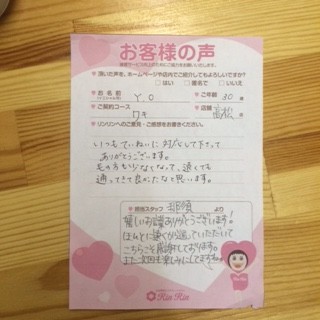 お客様の声
頂いた声を、ホームページや店内でご紹介してもよろしいですか?
はい 匿名で いいえ
お名前 Y.O ご年齢 30 歳
ご契約コース ワキ 店舗 高松 店
リンリンへのご意見、ご感想をお書きください。
いつもていねいに対応して下さって
ありがとうございます。
毛の方も少なくなって、遠くても
通ってきて良かったなと思います。
担当スタッフ より
嬉しいお言葉ありがとうございます!
ほんとに遠くから通っていただいて
こちらこそ感謝しております。
また次回も楽しみにしてますね
Rin Rin